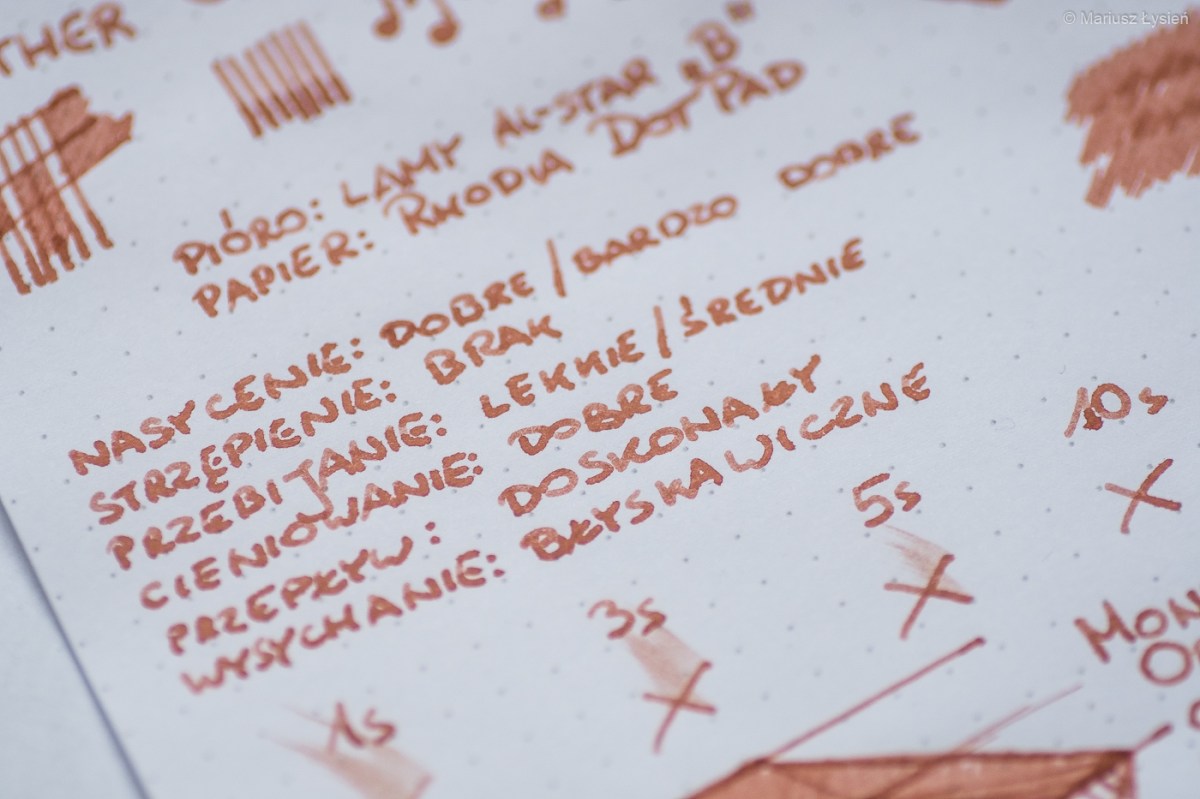 © Mariusz Łysień
THER
PIÓRO: LAMY AL-STAR „B"
PAPIER: RHODIA DOT PAD
NASYCENIE: DOBRE/BARDZO DOBRE
STRZĘPIENIE: BRAK
PRZEBIJANIE: LEKKIE/ŚREDNIE
CIENIOWANIE: DOBRE
PRZEPŁYW: DOSKONAŁY
WYSYCHANIE: BŁYSKAWICZNE
1s 3s 5s 10s
MON